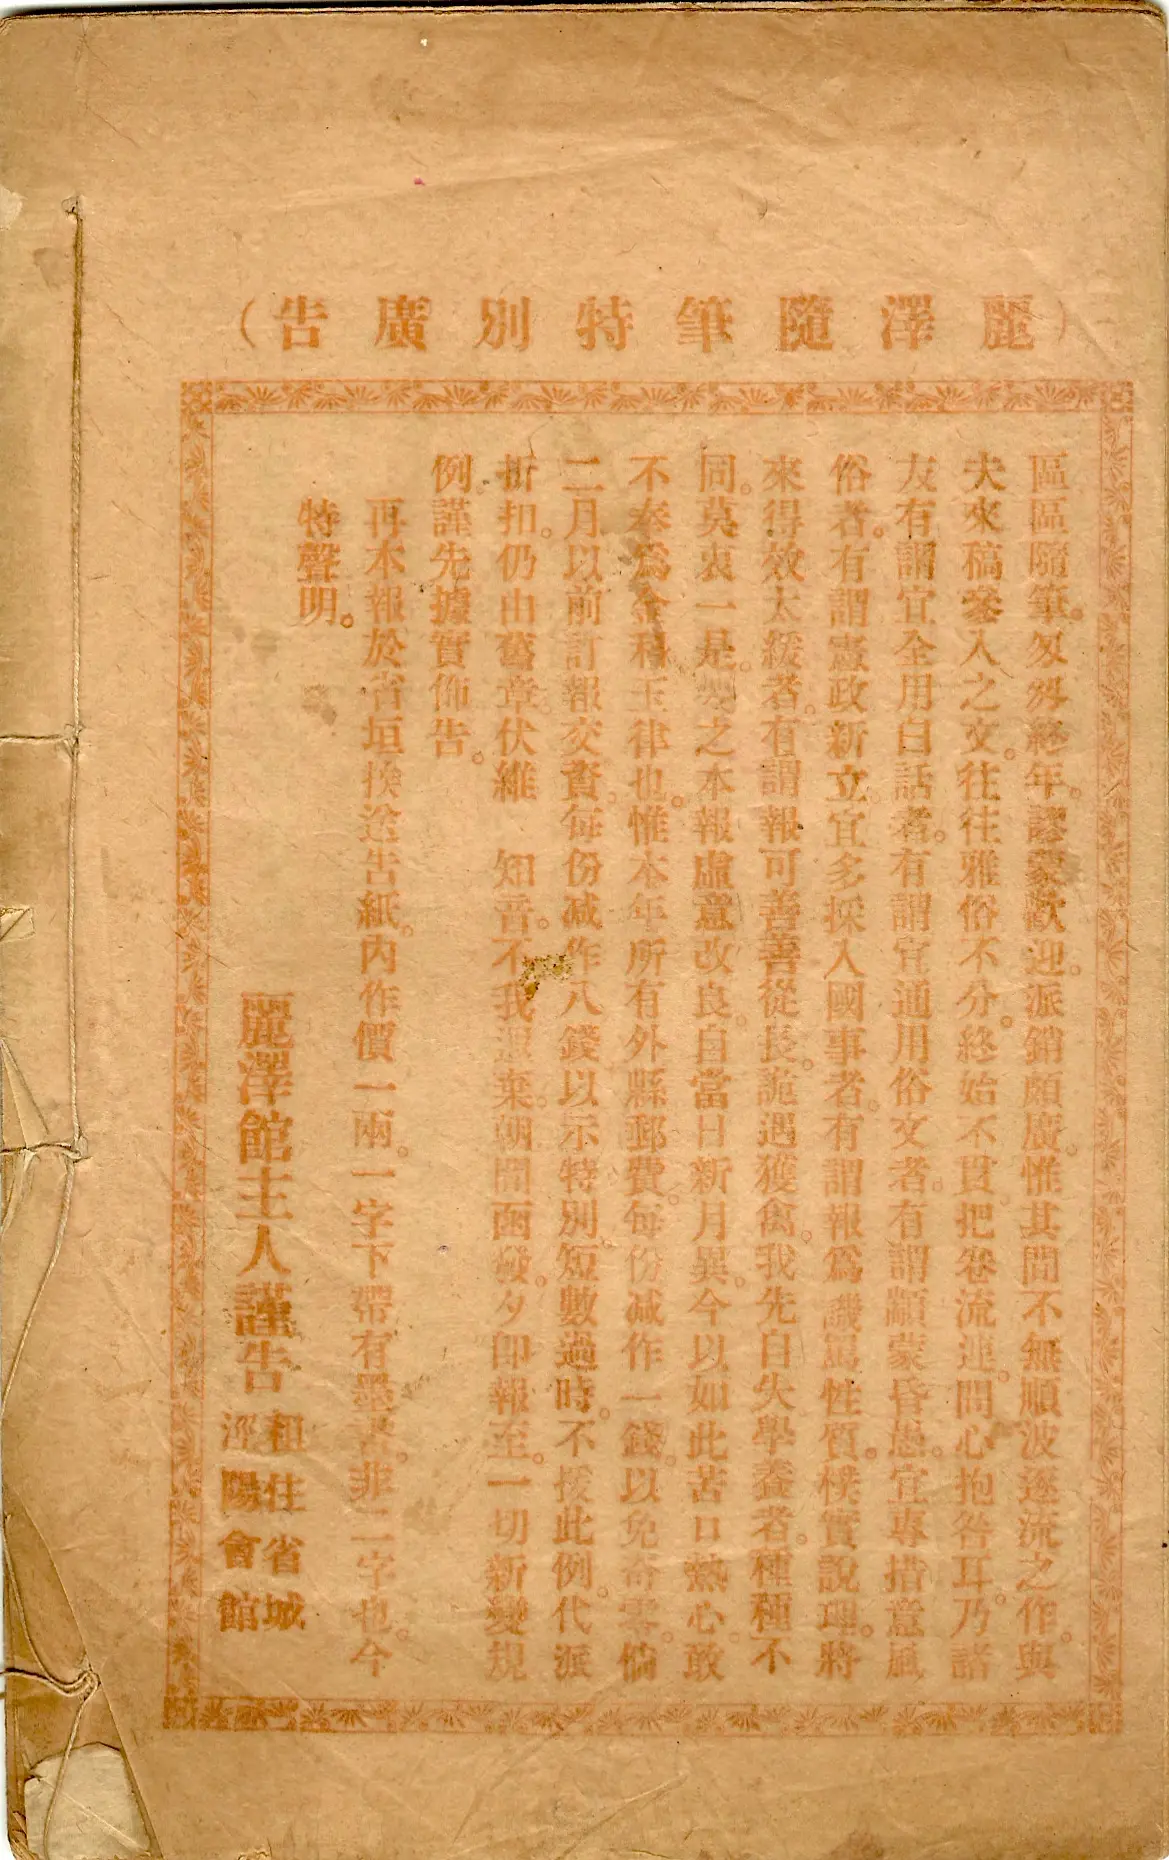 （麗澤隨筆特別廣告）
區區隨筆。匆匆終年。謬蒙歡迎。派銷頗廣。惟其間不無順波逐流之作。與
夫來稿參入之文。往往雅俗不分。終始不貫。把卷流連。問心抱咎耳。乃諸
友有謂宜全用白話者。有謂宜通用俗文者。有謂顓蒙昏愚。宜專措意風
俗者。有謂憲政新立。宜多採入國事者。有謂報爲譏罵性質。樸實說理。將
來得效太緩者。有謂報可善善從長。詭遇獲禽。我先自失學養者。種種不
同。莫衷一是。之本報虛意改良。自當日新月異。今以如此苦口熱心。敢
不奉爲金科玉律也。惟本年所有外縣郵費。每份減作一錢。以免奇零。倘
二月以前訂報交費。每份減作八錢。以示特別。短數過時。不援此例。代派
折扣。仍由舊章。伏維　知音。不我遐棄。朝間函發。夕卽報至。一切新變規
例。謹先據實佈告。
再本報於省垣挨送告紙。內作價一兩。一字下帶有墨書。非二字也。今
特聲明。
麗澤館主人謹告
租住省城
涇陽會館